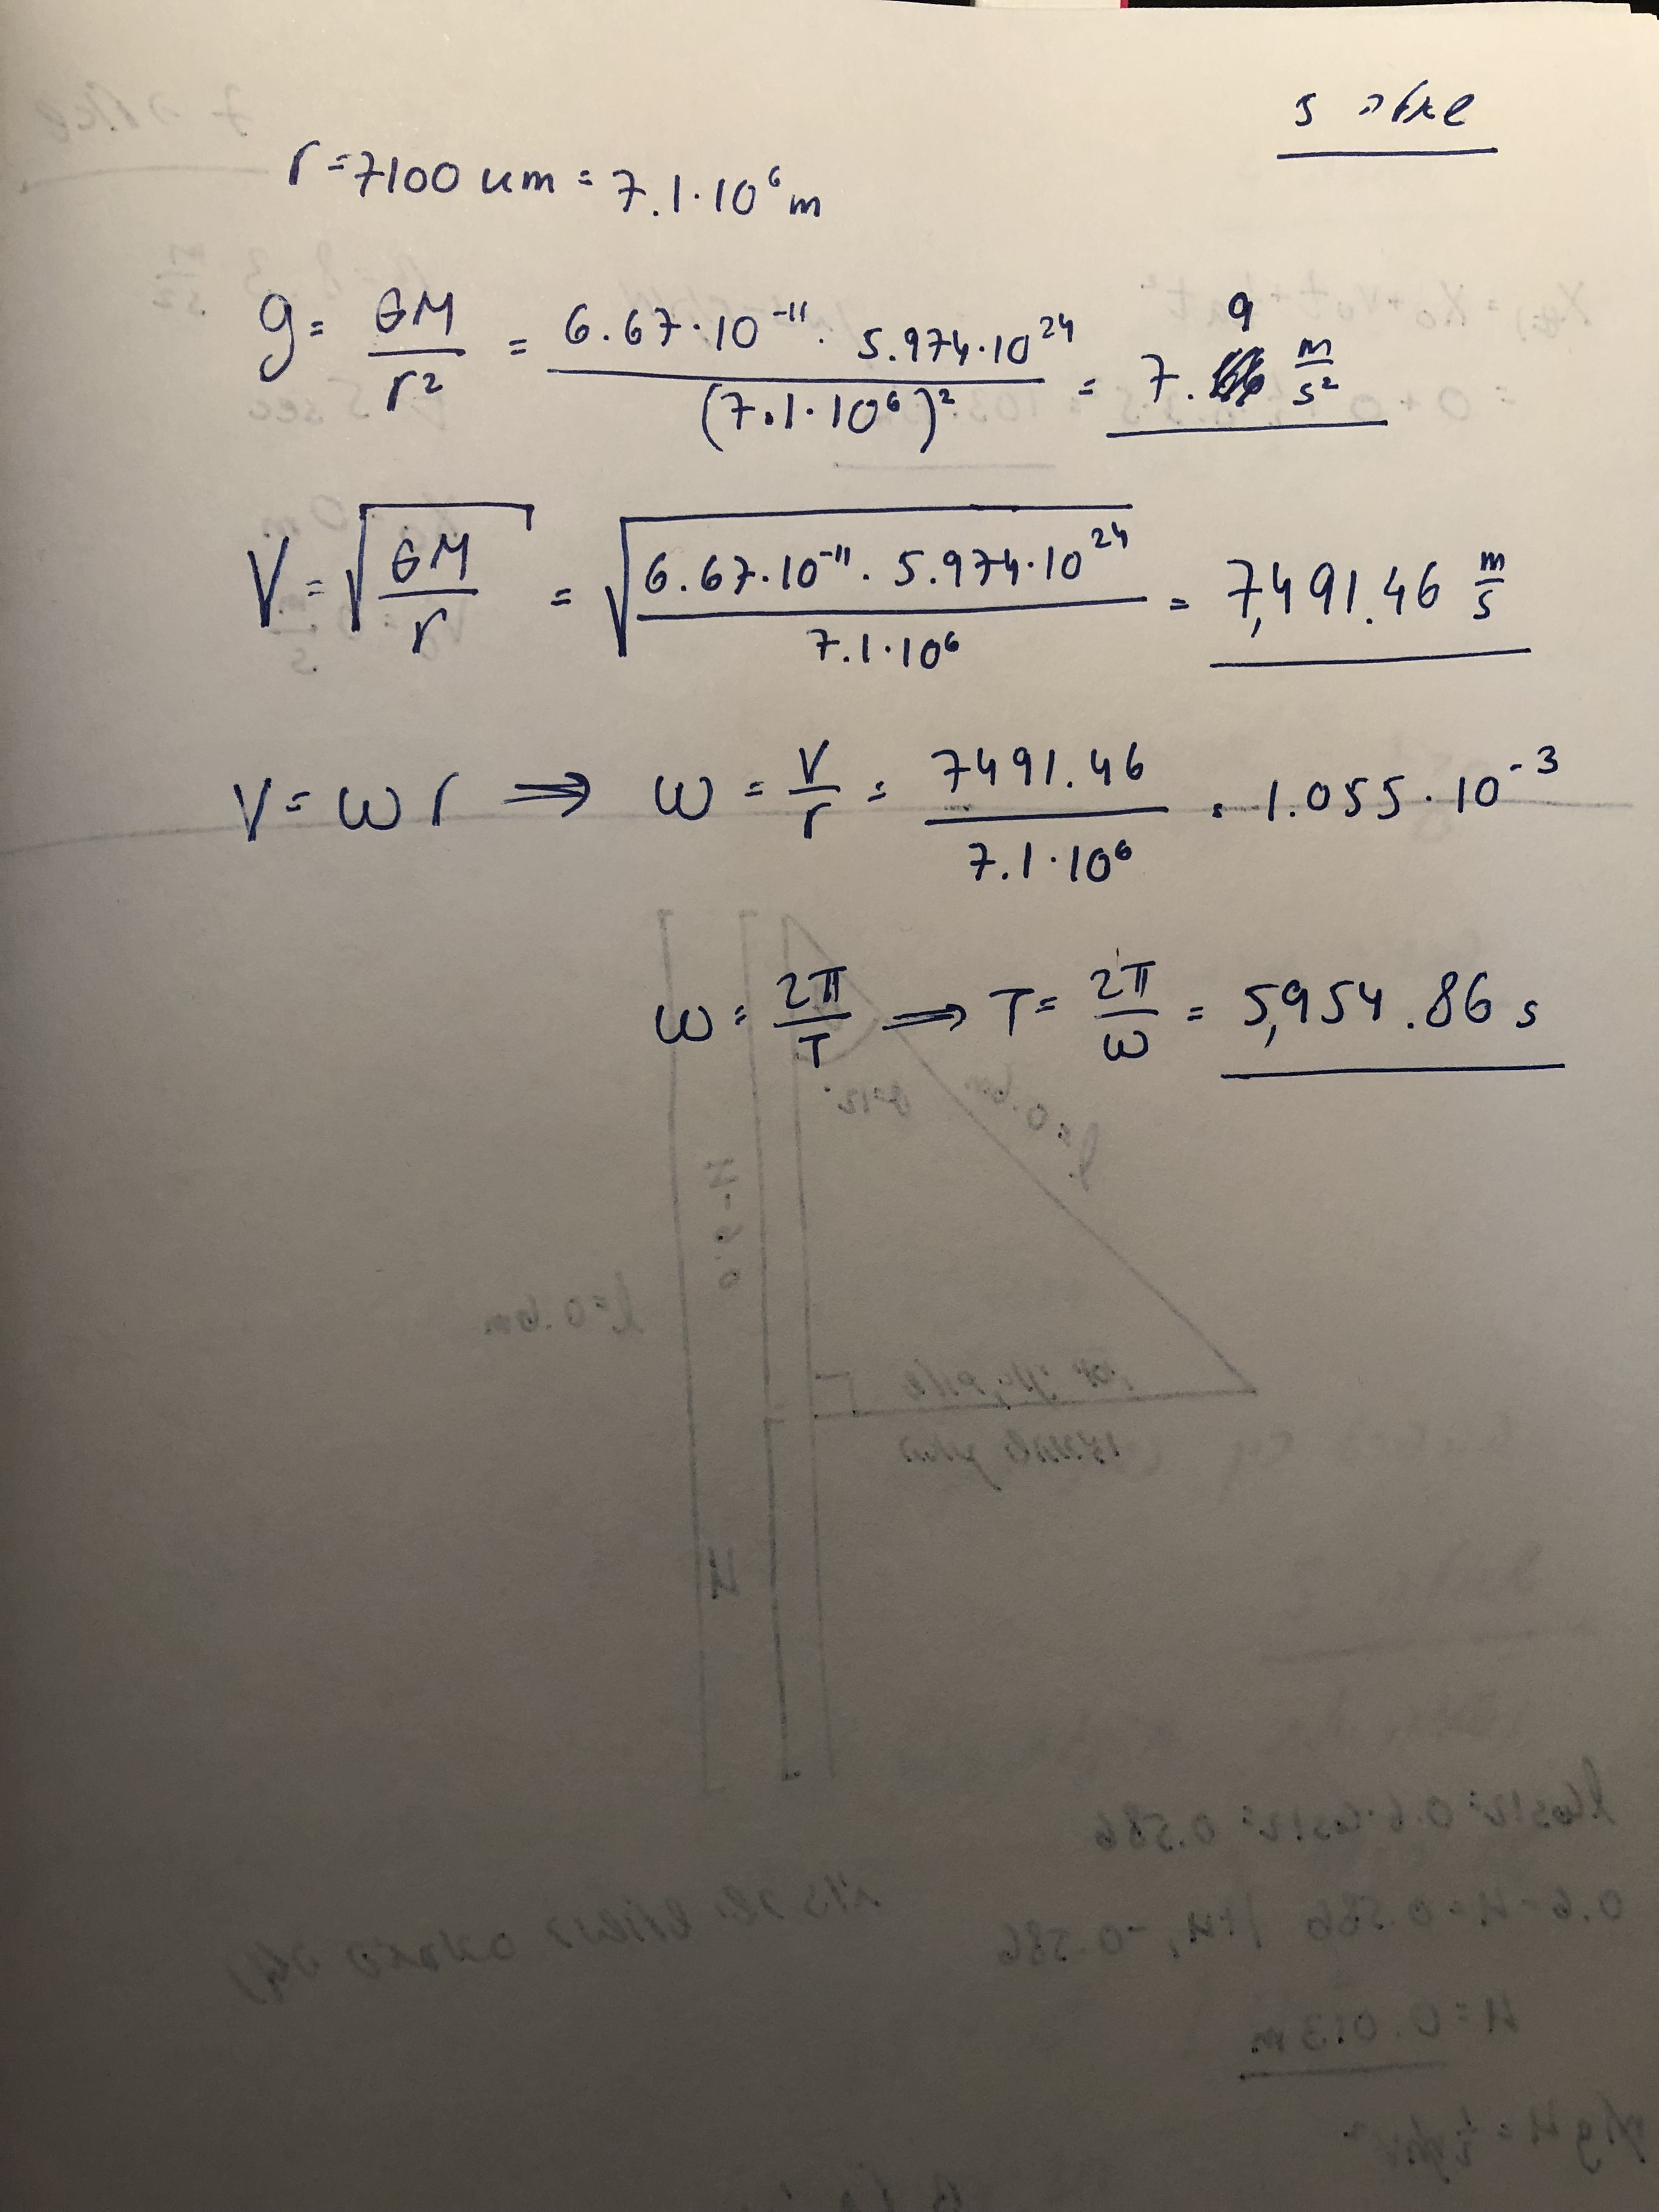 5 שאלה
r = 7100 km = 7.1·10⁶ m
g = GM/r² = 6.67·10⁻¹¹ · 5.974·10²⁴ / (7.1·10⁶)² = 7.9 m/s²
V = √(GM/r) = √(6.67·10⁻¹¹ · 5.974·10²⁴ / 7.1·10⁶) = 7,491.46 m/s
V = ωr ⟹ ω = V/r = 7491.46 / 7.1·10⁶ = 1.055·10⁻³
ω = 2π/T ⟹ T = 2π/ω = 5,954.86 s